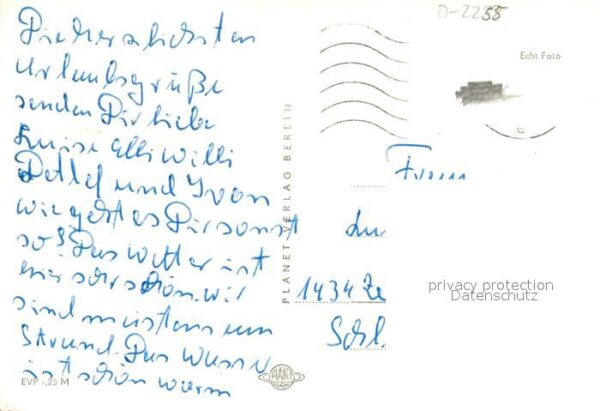 Die herzlichsten
Urlaubsgrüße
senden Dir liebe
Luise Elli Willi
Detlef und Yvon
wie geht es Dir sonst
so? Das Wetter ist
hier sehr schön. Wir
sind meistens am
Strand. Das Wasser
ist schön warm
EVP -,25 M
PLANET VERLAG BERLIN
PLANET
0-2255
Echt Foto
Frau
1434 Ze
Schl.
privacy protection
Datenschutz